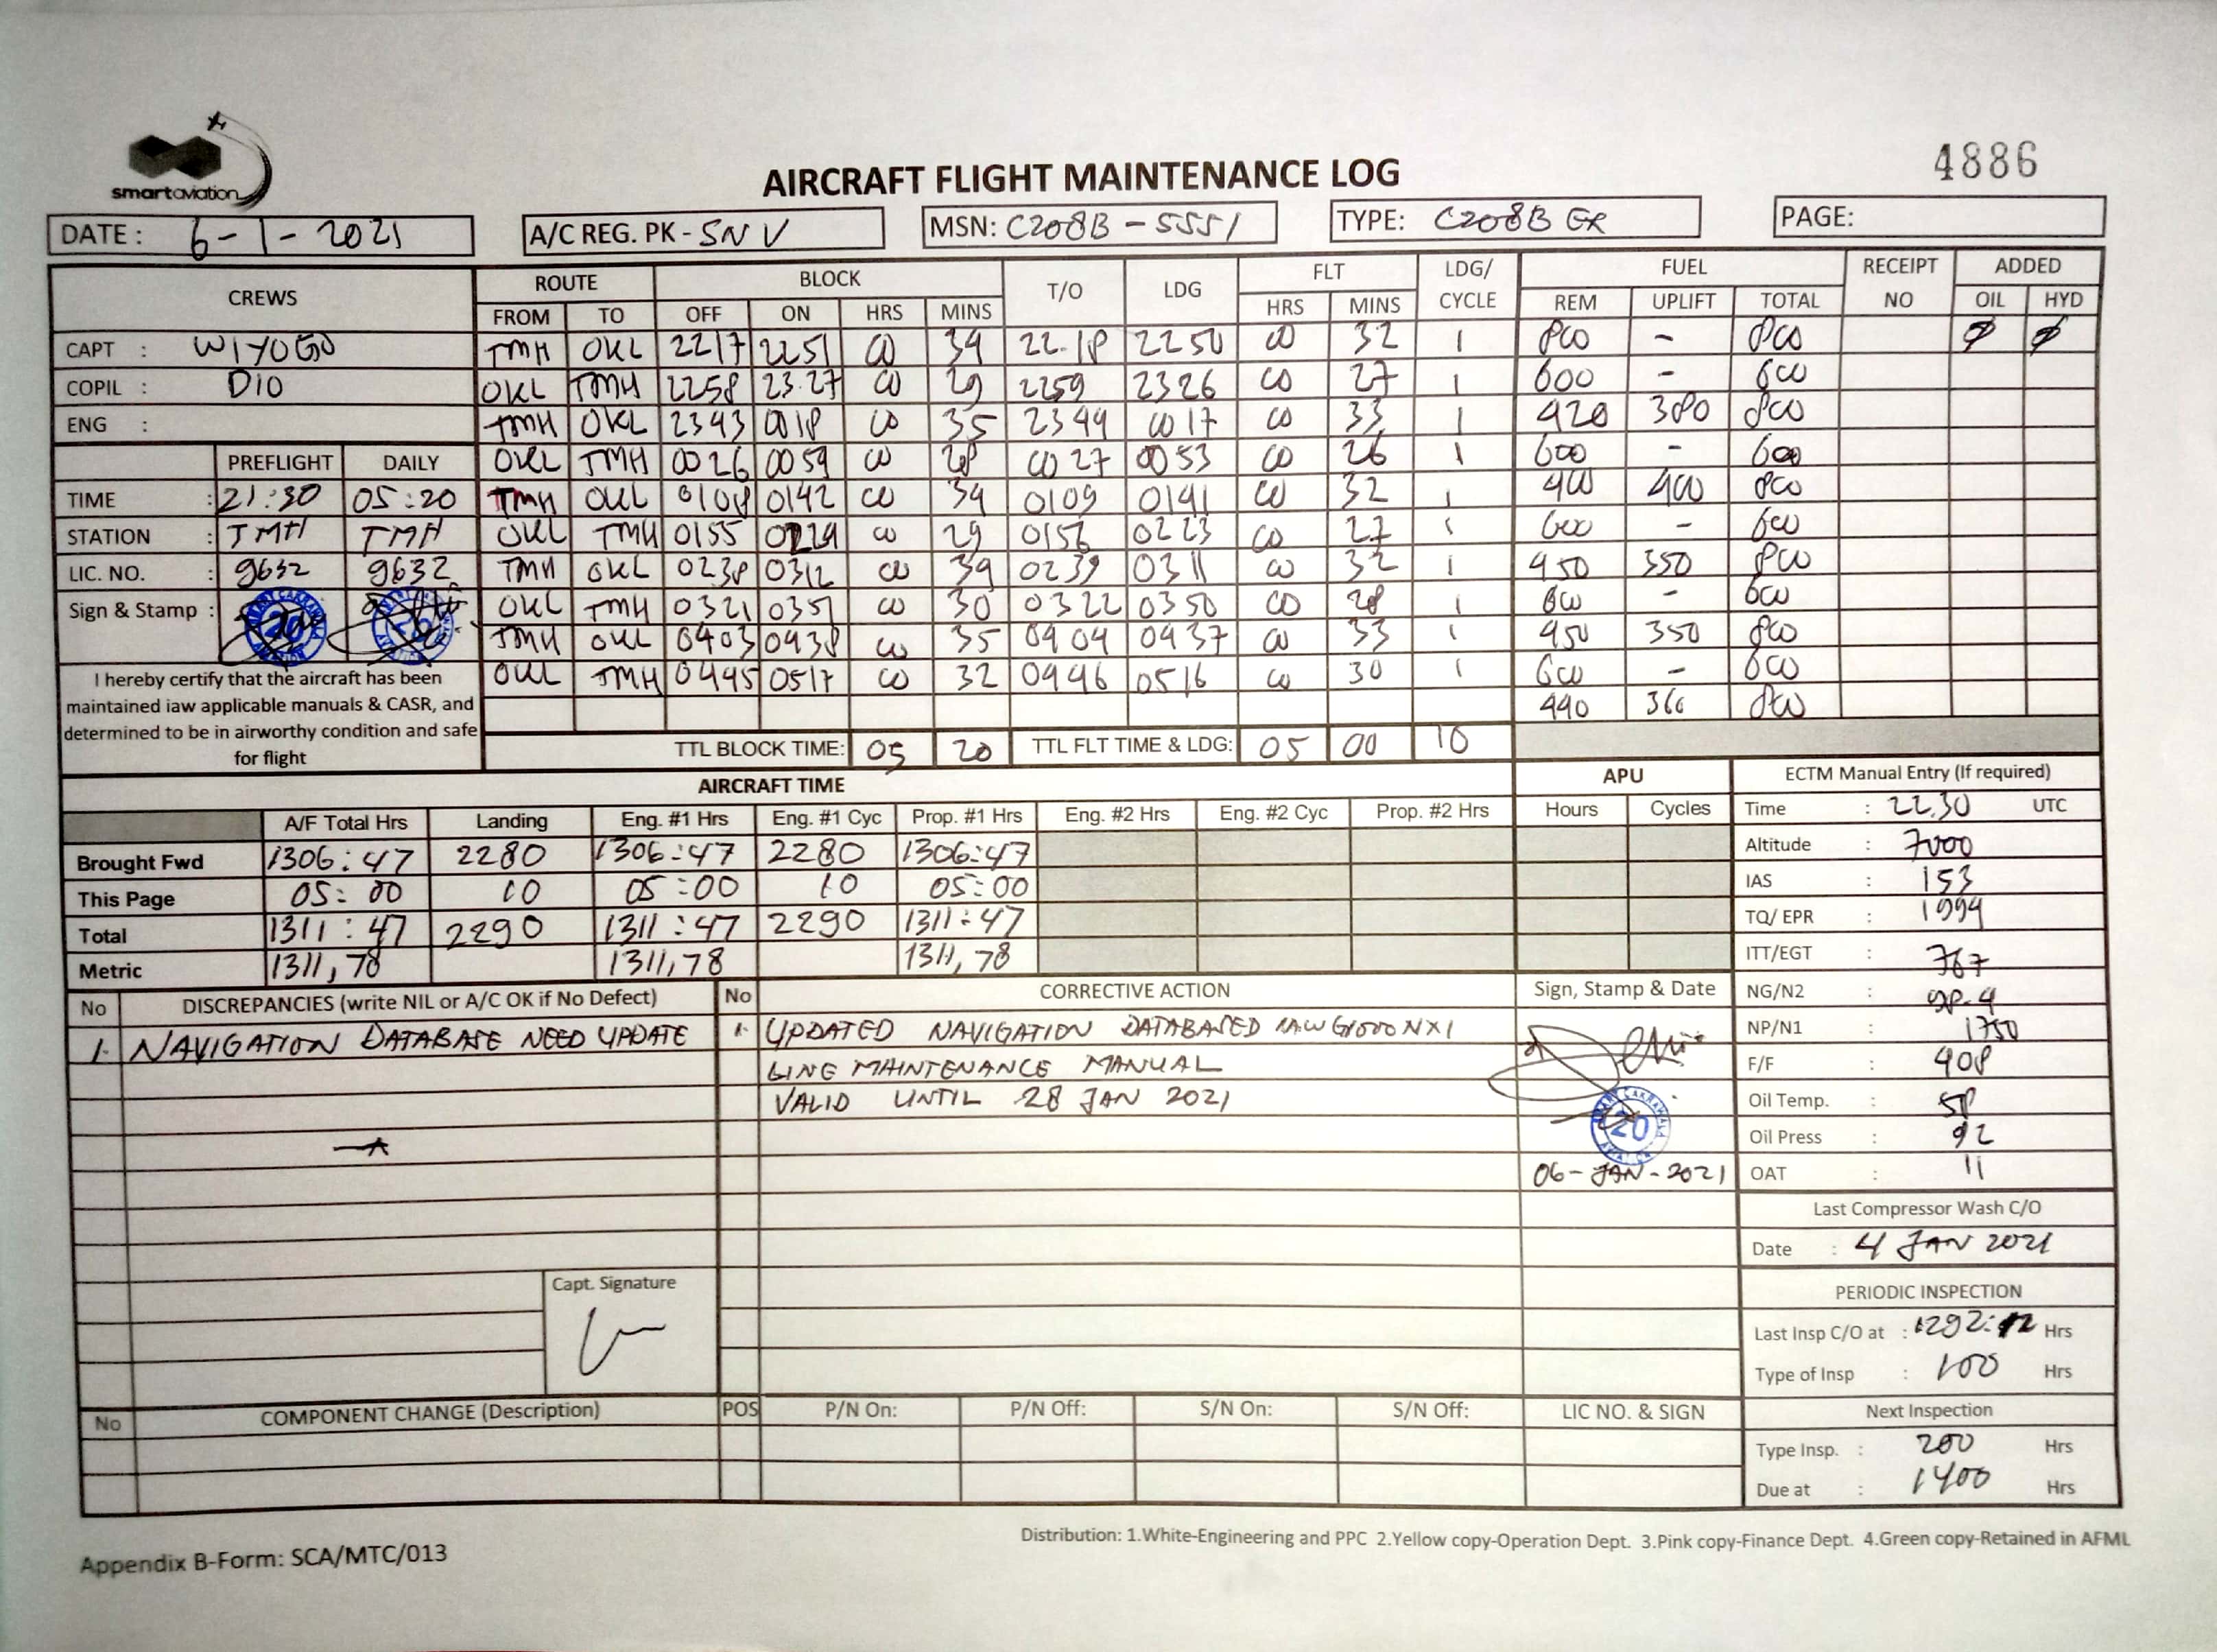 smartaviation
4886
AIRCRAFT FLIGHT MAINTENANCE LOG
DATE : 6-1-2021 A/C REG. PK - SNV MSN: C208B - 5551 TYPE: C208B EX PAGE:
CREWS ROUTE BLOCK T/O LDG FLT LDG/ CYCLE FUEL RECEIPT NO ADDED
FROM TO OFF ON HRS MINS HRS MINS REM UPLIFT TOTAL OIL HYD
CAPT : WIYOGO TMH OKL 2217 2251 00 34 22.18 2250 00 32 1 800 - 800 Ø Ø
COPIL : DIO OKL TMH 2258 23.27 00 29 2259 2326 00 27 1 600 - 600
ENG : TMH OKL 2343 0018 00 35 2344 0017 00 33 1 420 380 800
PREFLIGHT DAILY OKL TMH 0026 0054 00 28 0027 0053 00 26 1 600 - 600
TIME : 21:30 05:20 TMH OKL 0108 0142 00 34 0109 0141 00 32 1 400 400 800
STATION : TMH TMH OKL TMH 0155 0224 00 29 0156 0223 00 27 1 600 - 600
LIC. NO. : 9632 9632 TMH OKL 0238 0312 00 34 0239 0311 00 32 1 450 350 800
Sign & Stamp : 20 20 OKL TMH 0321 0351 00 30 0322 0350 00 28 1 600 - 600
TMH OKL 0403 0438 00 35 0404 0437 00 33 1 450 350 800
OKL TMH 0445 0517 00 32 0446 0516 00 30 1 600 - 600
440 360 800
I hereby certify that the aircraft has been
maintained iaw applicable manuals & CASR, and
determined to be in airworthy condition and safe
for flight
TTL BLOCK TIME: 05 20 TTL FLT TIME & LDG: 05 00 10
AIRCRAFT TIME APU ECTM Manual Entry (If required)
A/F Total Hrs Landing Eng. #1 Hrs Eng. #1 Cyc Prop. #1 Hrs Eng. #2 Hrs Eng. #2 Cyc Prop. #2 Hrs Hours Cycles Time : 22.30 UTC
Brought Fwd 1306:47 2280 1306:47 2280 1306:47 Altitude : 7000
This Page 05:00 10 05:00 10 05:00 IAS : 153
Total 1311:47 2290 1311:47 2290 1311:47 TQ/ EPR : 1994
Metric 1311,78 1311,78 1311,78 ITT/EGT : 767
No DISCREPANCIES (write NIL or A/C OK if No Defect) No CORRECTIVE ACTION Sign, Stamp & Date NG/N2 : 98.4
1. NAVIGATION DATABASE NEED UPDATE 1. UPDATED NAVIGATION DATABASED IAW G1000 NXI NP/N1 : 1750
LINE MAINTENANCE MANUAL F/F : 408
VALID UNTIL 28 JAN 2021 Oil Temp. : 58
SMART CAKRAWALA AVIATION 20
Oil Press : 92
06-JAN-2021 OAT : 11
Last Compressor Wash C/O
Date : 4 JAN 2021
Capt. Signature
PERIODIC INSPECTION
Last Insp C/O at : 1292: Hrs
Type of Insp : 100 Hrs
No COMPONENT CHANGE (Description) POS P/N On: P/N Off: S/N On: S/N Off: LIC NO. & SIGN Next Inspection
Type Insp. : 200 Hrs
Due at : 1400 Hrs
Distribution: 1.White-Engineering and PPC 2.Yellow copy-Operation Dept. 3.Pink copy-Finance Dept. 4.Green copy-Retained in AFML
Appendix B-Form: SCA/MTC/013